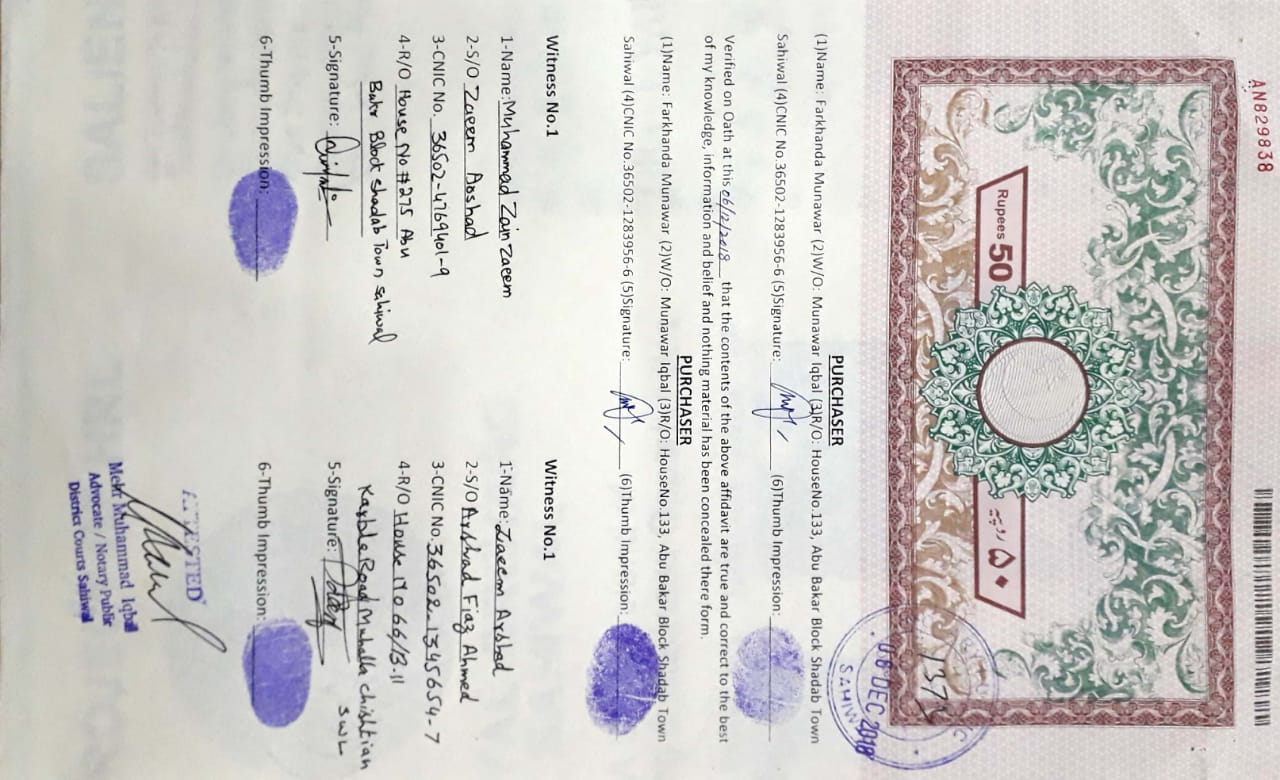 AN829838
Rupees 50
۵۰ روپیہ
1373
06 DEC 2018
SAHIW
PURCHASER
(1)Name: Farkhanda Munawar (2)W/O: Munawar Iqbal (3)R/O: HouseNo.133, Abu Bakar Block Shadab Town
Sahiwal (4)CNIC No.36502-1283956-6 (5)Signature: (6)Thumb Impression:
Verified on Oath at this 06/12/2018 that the contents of the above affidavit are true and correct to the best
of my knowledge, information and belief and nothing material has been concealed there form.
PURCHASER
(1)Name: Farkhanda Munawar (2)W/O: Munawar Iqbal (3)R/O: HouseNo.133, Abu Bakar Block Shadab Town
Sahiwal (4)CNIC No.36502-1283956-6 (5)Signature: (6)Thumb Impression:
Witness No.1
1-Name: Muhammad Zain Zaeem
2-S/O Zaeem Arshad
3-CNIC No. 36502-4769401-9
4-R/O House No #275 Abu
Bakr Block Shadab Town Sahiwal
5-Signature:
6-Thumb Impression:
Witness No.1
1-Name: Zaeem Arshad
2-S/O Arshad Fiaz Ahmed
3-CNIC No. 36502-1345654-7
4-R/O House No 66/B.11
Karble Road Muhalla Chishtian
SWL
5-Signature:
6-Thumb Impression:
ATTESTED
Mehr Muhammad Iqbal
Advocate / Notary Public
District Courts Sahiwal